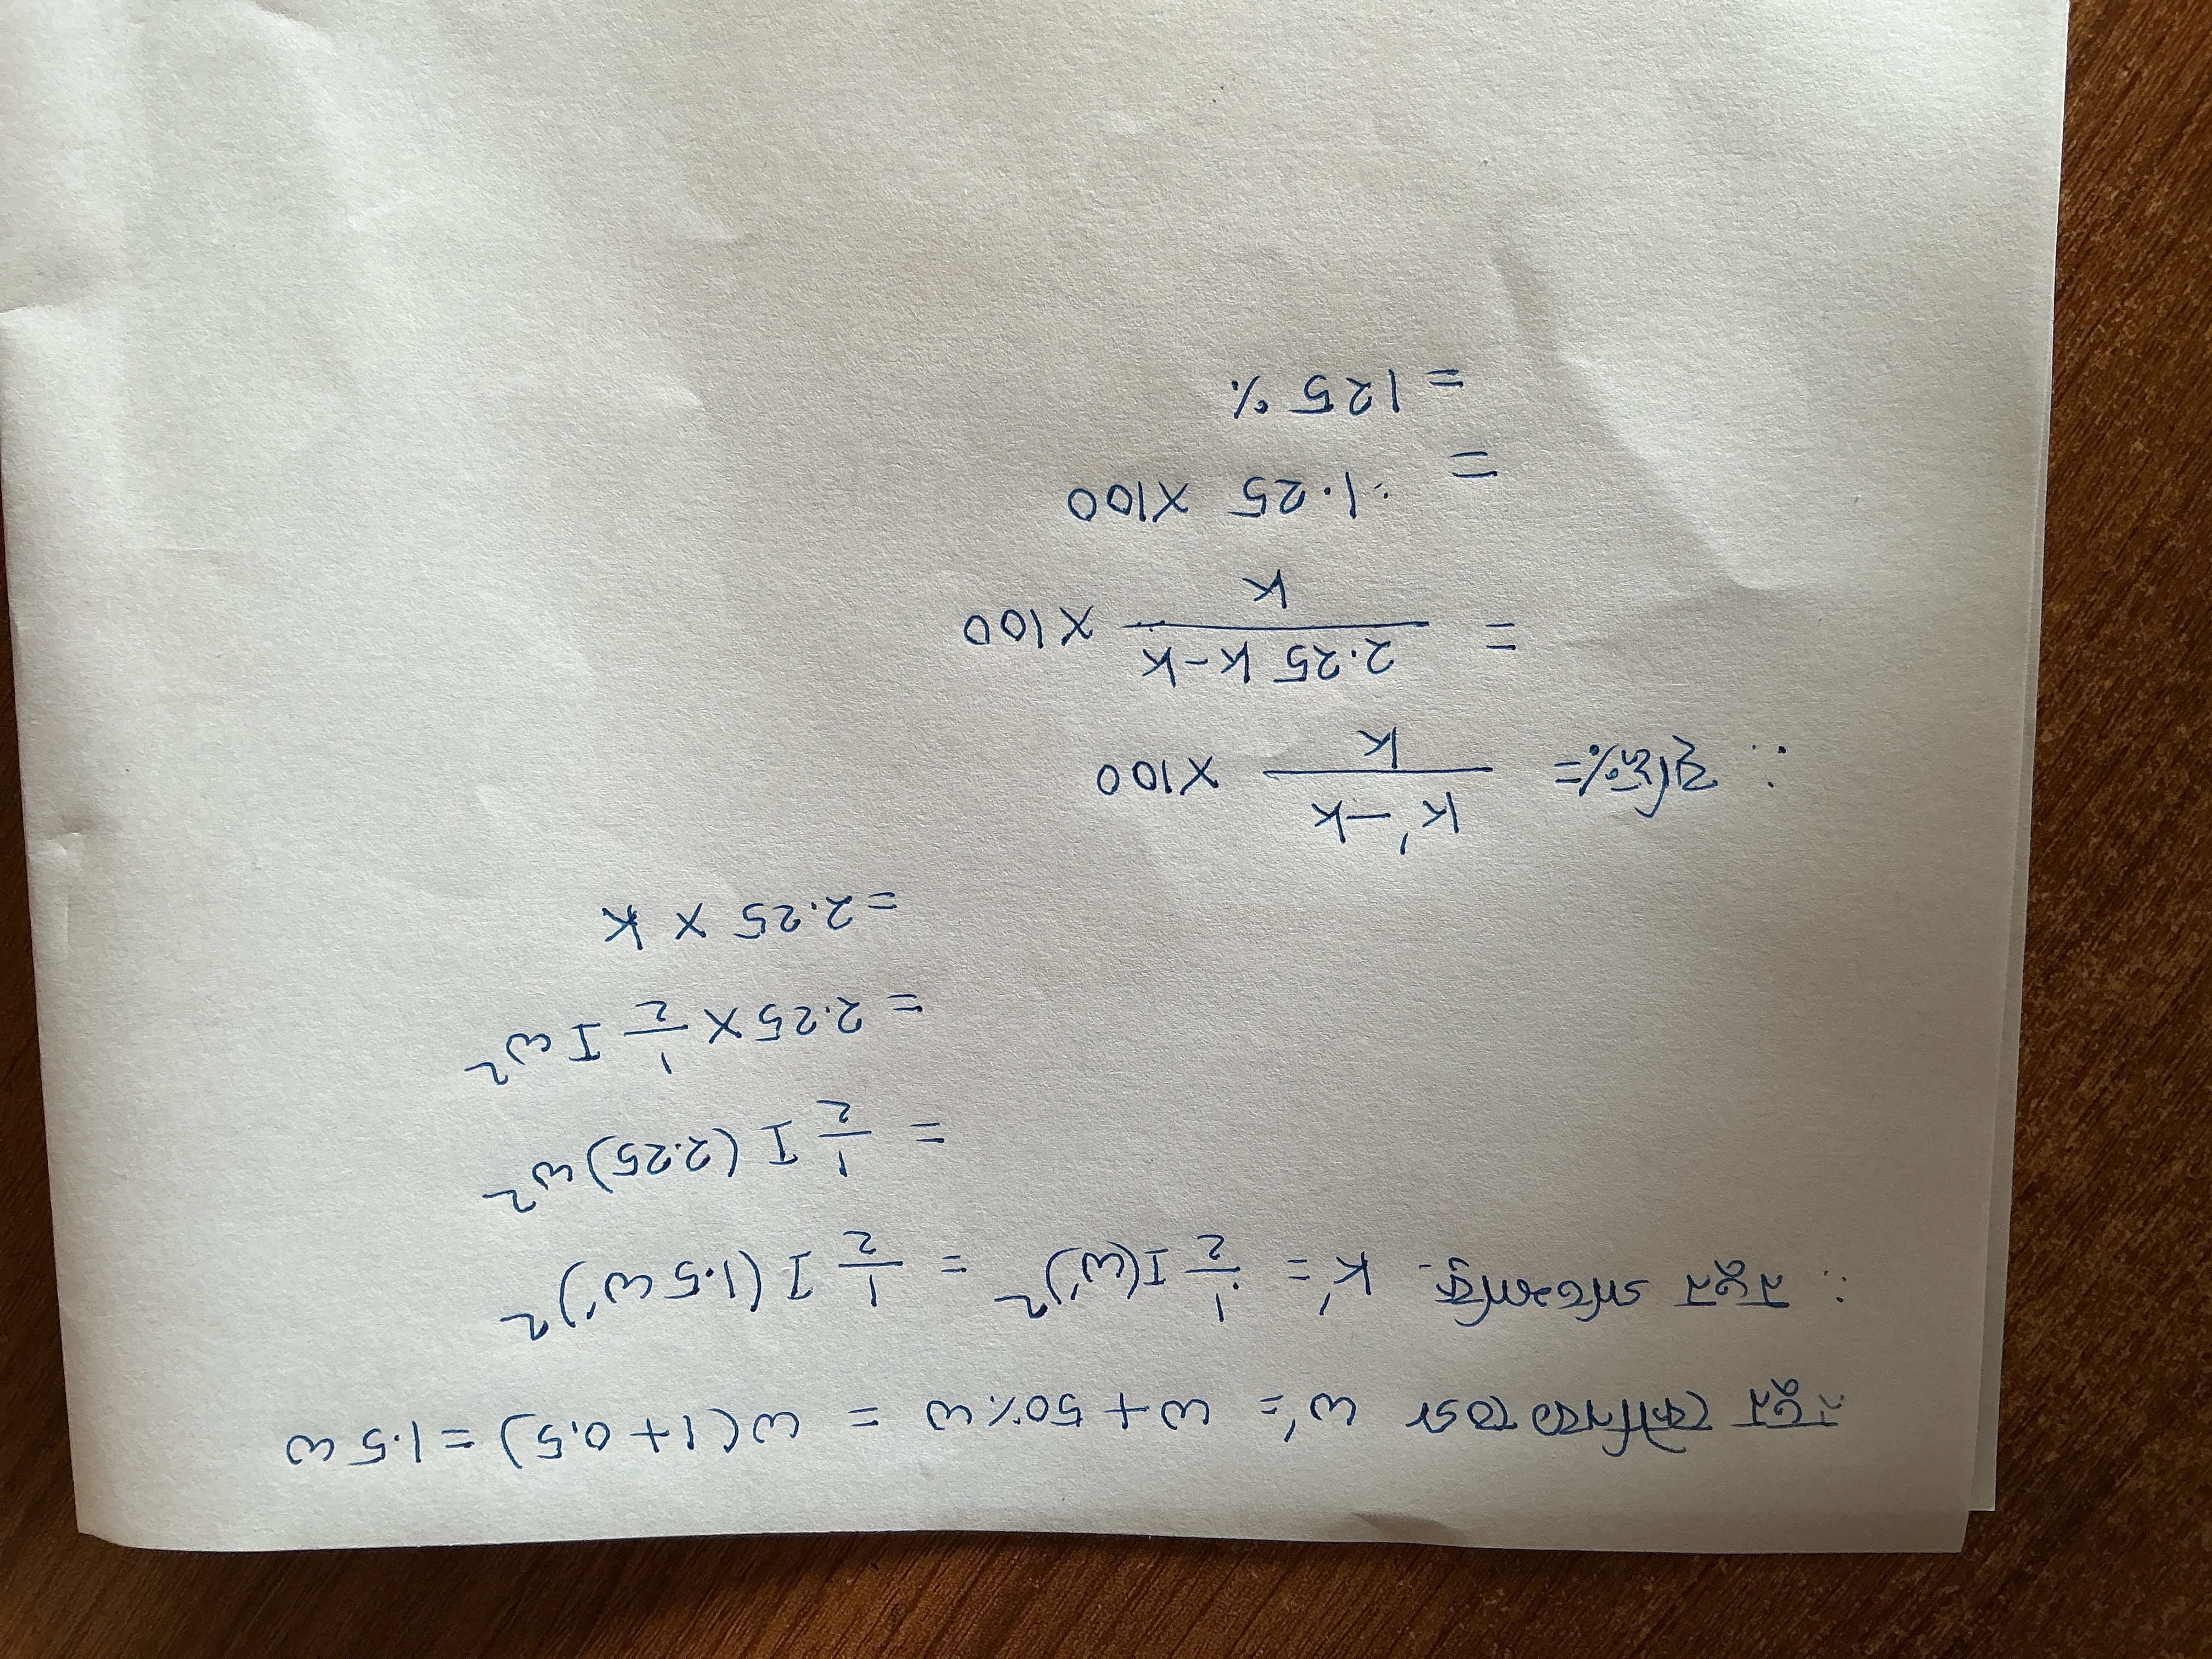 নতুন কৌণিক বেগ ω' = ω + 50% ω = ω(1 + 0.5) = 1.5 ω
∴ নতুন গতিশক্তি K' = 1/2 I(ω')² = 1/2 I (1.5 ω')²
= 1/2 I (2.25) ω²
= 2.25 × 1/2 I ω²
= 2.25 × K
∴ বৃদ্ধি% = K' - K / K × 100
= 2.25 K - K / K × 100
= 1.25 × 100
= 125 %